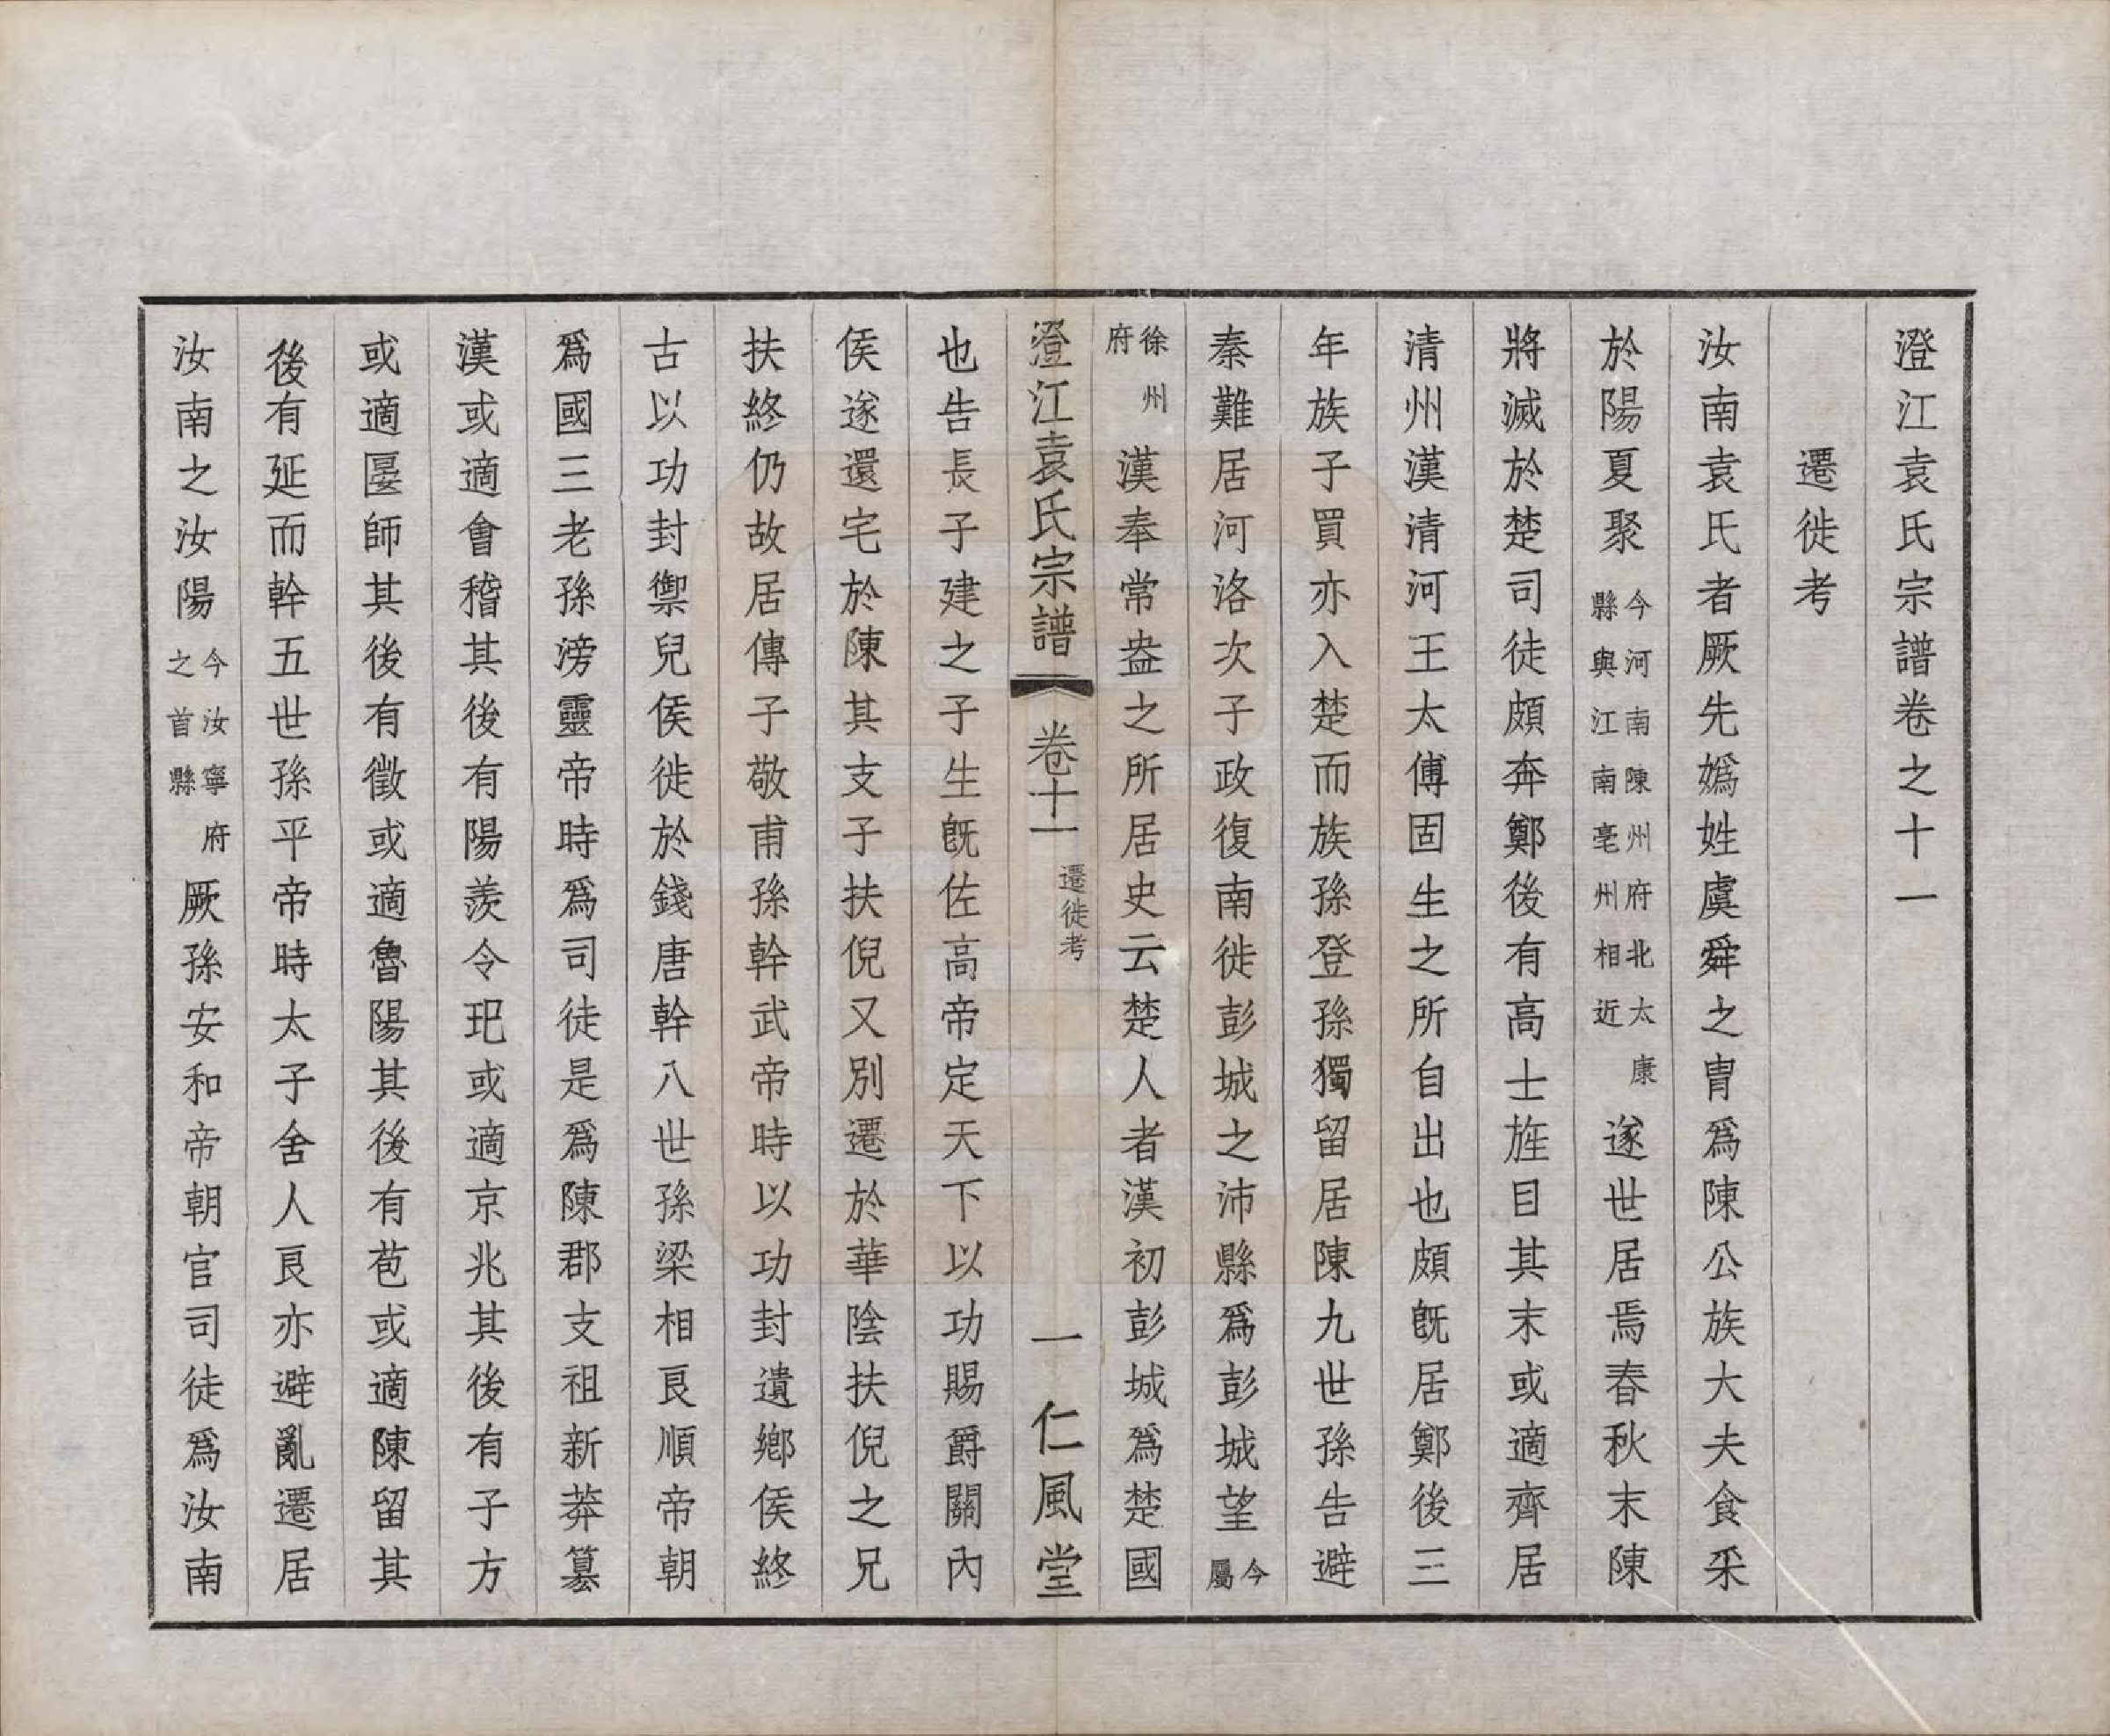 澄江袁氏宗譜卷之十一
遷徙考
汝南袁氏者厥先嬀姓虞舜之冑爲陳公族大夫食采
於陽夏聚今河南陳州府北太康縣與江南亳州相近遂世居焉春秋末陳
將滅於楚司徒頗奔鄭後有高士旌目其末或適齊居
清州漢清河王太傅固生之所自出也頗既居鄭後三
年族子買亦入楚而族孫登孫獨留居陳九世孫告避
秦難居河洛次子政復南徙彭城之沛縣爲彭城望今屬
徐州府漢奉常盎之所居史云楚人者漢初彭城爲楚國
澄江袁氏宗譜 卷十一 遷徙考 一 仁風堂
也告長子建之子生既佐高帝定天下以功賜爵關內
侯遂還宅於陳其支子扶倪又別遷於華陰扶倪之兄
扶終仍故居傳子敬甫孫幹武帝時以功封遺鄉侯終
古以功封禦兒侯徙於錢唐幹八世孫梁相良順帝朝
爲國三老孫滂靈帝時爲司徒是爲陳郡支祖新莽篡
漢或適會稽其後有陽羨令玘或適京兆其後有子方
或適匽師其後有徵或適魯陽其後有苞或適陳留其
後有延而幹五世孫平帝時太子舍人良亦避亂遷居
汝南之汝陽今汝寧府之首縣厥孫安和帝朝官司徒爲汝南